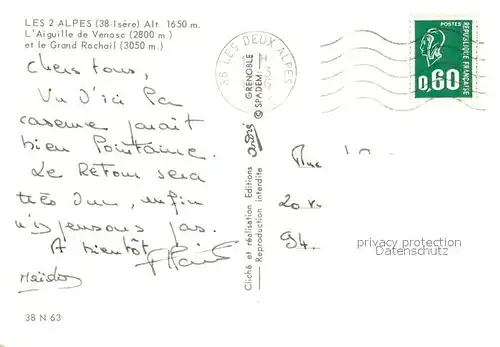 LES 2 ALPES (38-Isère) Alt. 1650 m.
L'Aiguille de Venosc (2800 m.)
et le Grand Rochail (3050 m.)
Chers tous,
Vu d'ici la
caserne paraît
bien lointaine.
Le Retour sera
très dur, enfin
n'y pensons pas.
A bientôt
38 N 63
38 LES DEUX ALPES
POSTES
RÉPUBLIQUE FRANÇAISE
0,60
GRENOBLE
© SPADEM
Cliché et réalisation Editions
Reproduction interdite
Rue
94
privacy protection
Datenschutz